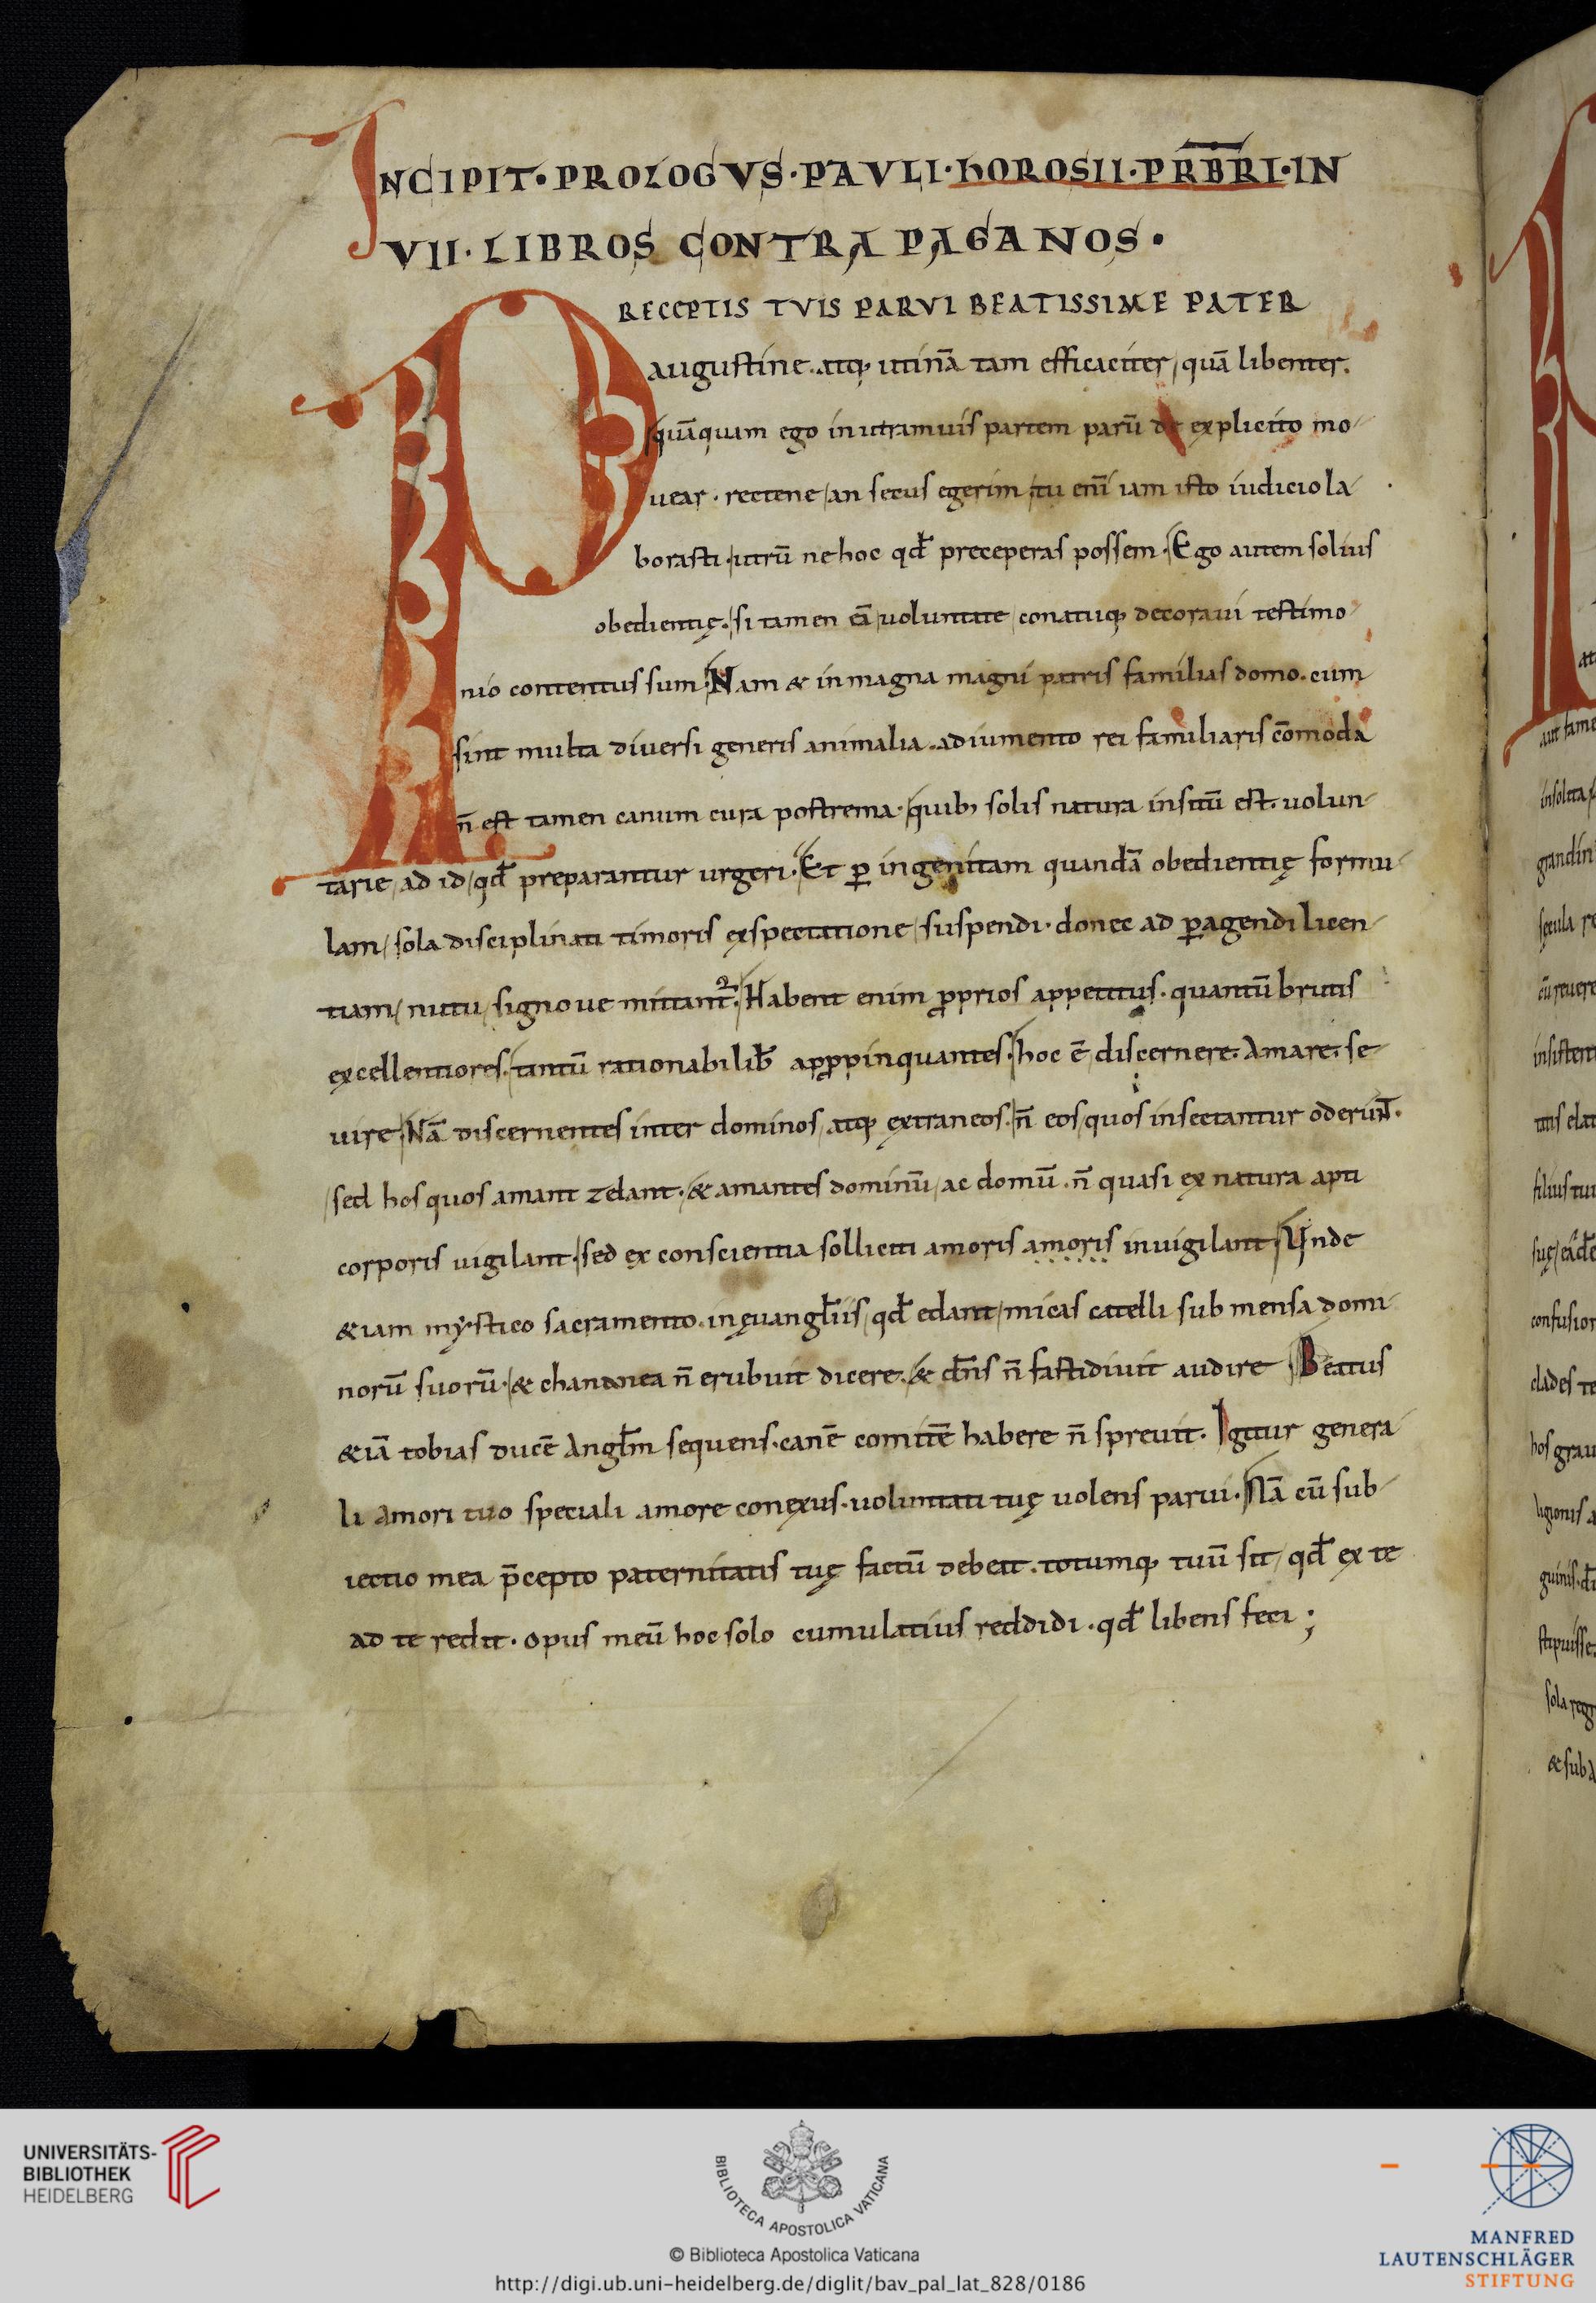 INCIPIT·PROLOGVS·PAVLI·hOROSII·PR̅B̅R̅I·IN
VII·LIBROS CONTRA PAGANOS·
PRECEPTIS TVIS PARVI BEATISSIME PATER
augustine. atq; utinā tam efficaciter, quā libenter.
quāquam ego inutramuis partem parū de explicito mo-
uear. rectene, an secus egerim, tu enī iam isto iudicio la-
borasti. utrū ne hoc qđ preceperas possem. Ego autem solius
obedientię. si tamen eā uoluntate, conatuq; decoraui testimo-
nio contentus sum. Nam & inmagna magni patris familias domo. cum
sint multa diuersi generis animalia. adiumento rei familiaris cōmoda
n̄ est tamen canum cura postrema. quib; solis natura insitū est. uolun-
tarie, ad id, qđ preparantur urgeri. Et ꝑ ingenitam quandā obedientię formu-
lam, sola disciplinati timoris exspectatione, suspendi. donec ad ꝑagendi licen-
tiam, nutu, signoue mittant᷑. Habent enim ꝓprios appetitus. quantū brutis
excellentiores. tantū rationabilib; apꝓpinquantes. hoc ē discernere. Amare. se-
uire. Nā discernentes inter dominos, atq; extraneos. n̄ eos quos insectantur oderunt.
sed hos quos amant zelant. & amantes dominū, ac domū. n̄ quasi ex natura apti
corporis uigilant. sed ex conscientia solliciti amoris amoris inuigilant. Unde
&iam mẏstico sacramento. inęuangl̄iis, qđ edant, micas catelli sub mensa domi-
norū suorū. & chananea n̄ erubuit dicere. & dn̄s n̄ fastidiuit audire Beatus
&iā tobias ducē Angl̄m sequens. canē comitē habere n̄ spreuit. Igitur genera-
li Amori tuo speciali amore conexus. uoluntati tuę uolens parui. Nā cū sub-
iectio mea p̄cepto paternitatis tuę factū debeat. totumq; tuū sit, qđ ex te
ad te redit. opus meū hoc solo cumulatius reddidi. qđ libens feci;
UNIVERSITÄTS-
BIBLIOTHEK
HEIDELBERG
BIBLIOTECA APOSTOLICA VATICANA
© Biblioteca Apostolica Vaticana
http://digi.ub.uni-heidelberg.de/diglit/bav_pal_lat_828/0186
MANFRED
LAUTENSCHLÄGER
STIFTUNG